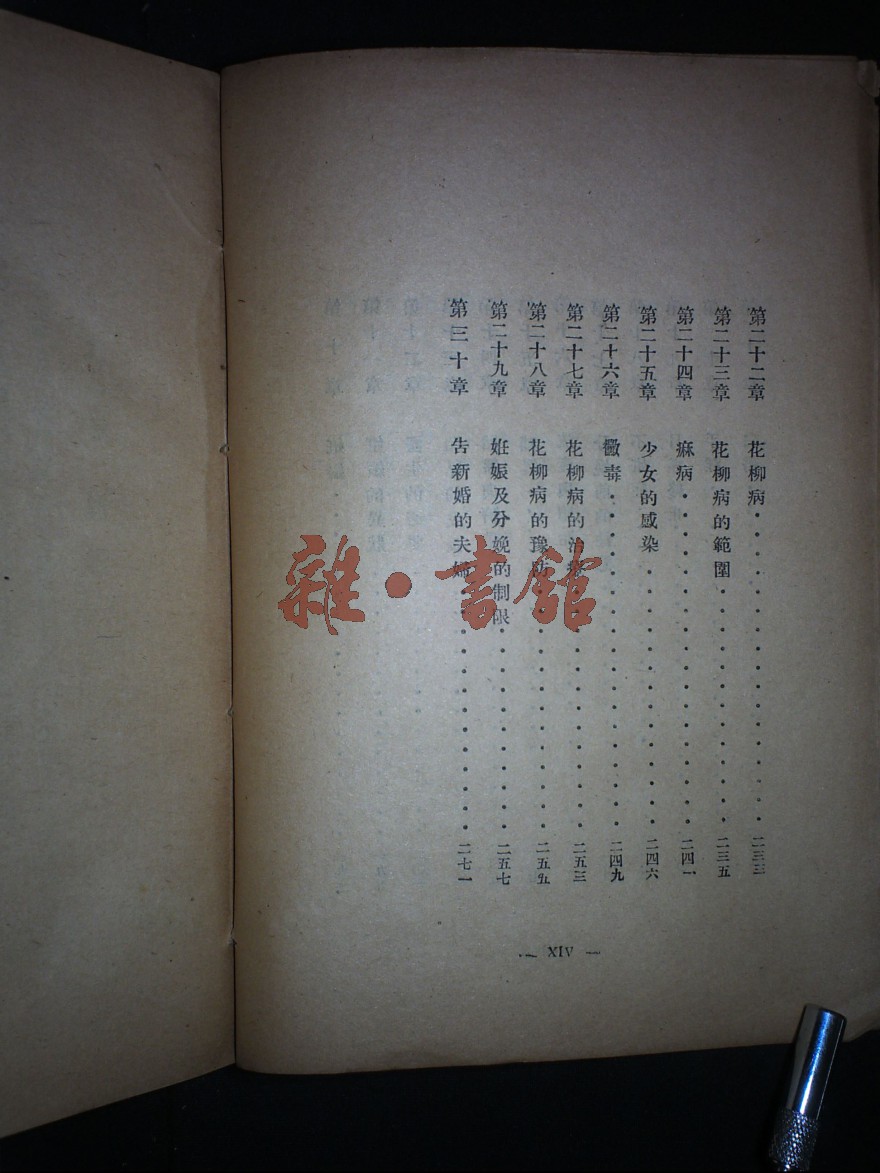 第二十二章 花柳病・・・・・・・・・・・・・・二三三
第二十三章 花柳病的範圍・・・・・・・・・・・二三五
第二十四章 痳病・・・・・・・・・・・・・・・二四一
第二十五章 少女的感染・・・・・・・・・・・・二四六
第二十六章 黴毒・・・・・・・・・・・・・・・二四九
第二十七章 花柳病的治療・・・・・・・・・・・二五三
第二十八章 花柳病的豫防・・・・・・・・・・・二五五
第二十九章 姙娠及分娩的制限・・・・・・・・・二五七
第三十章 告新婚的夫婦・・・・・・・・・・・二七一
— XIV —
雜・書館